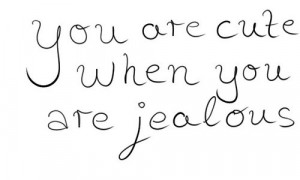 you are cute
when you
are jealous